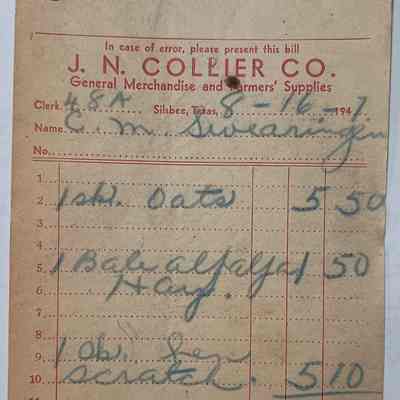 In case of error, please present this bill
J. N. COLLIER CO.
General Merchandise and Farmers' Supplies
Clerk 48A Silsbee, Texas, 8-16-1947
Name C. M. Swearingin
No.
1
2 1 sk. Oats 5 50
3
4
5 1 Bale alfalfa 1 50
6 Hay.
7
8
9 1 sk. Hen
10 scratch. 5 10